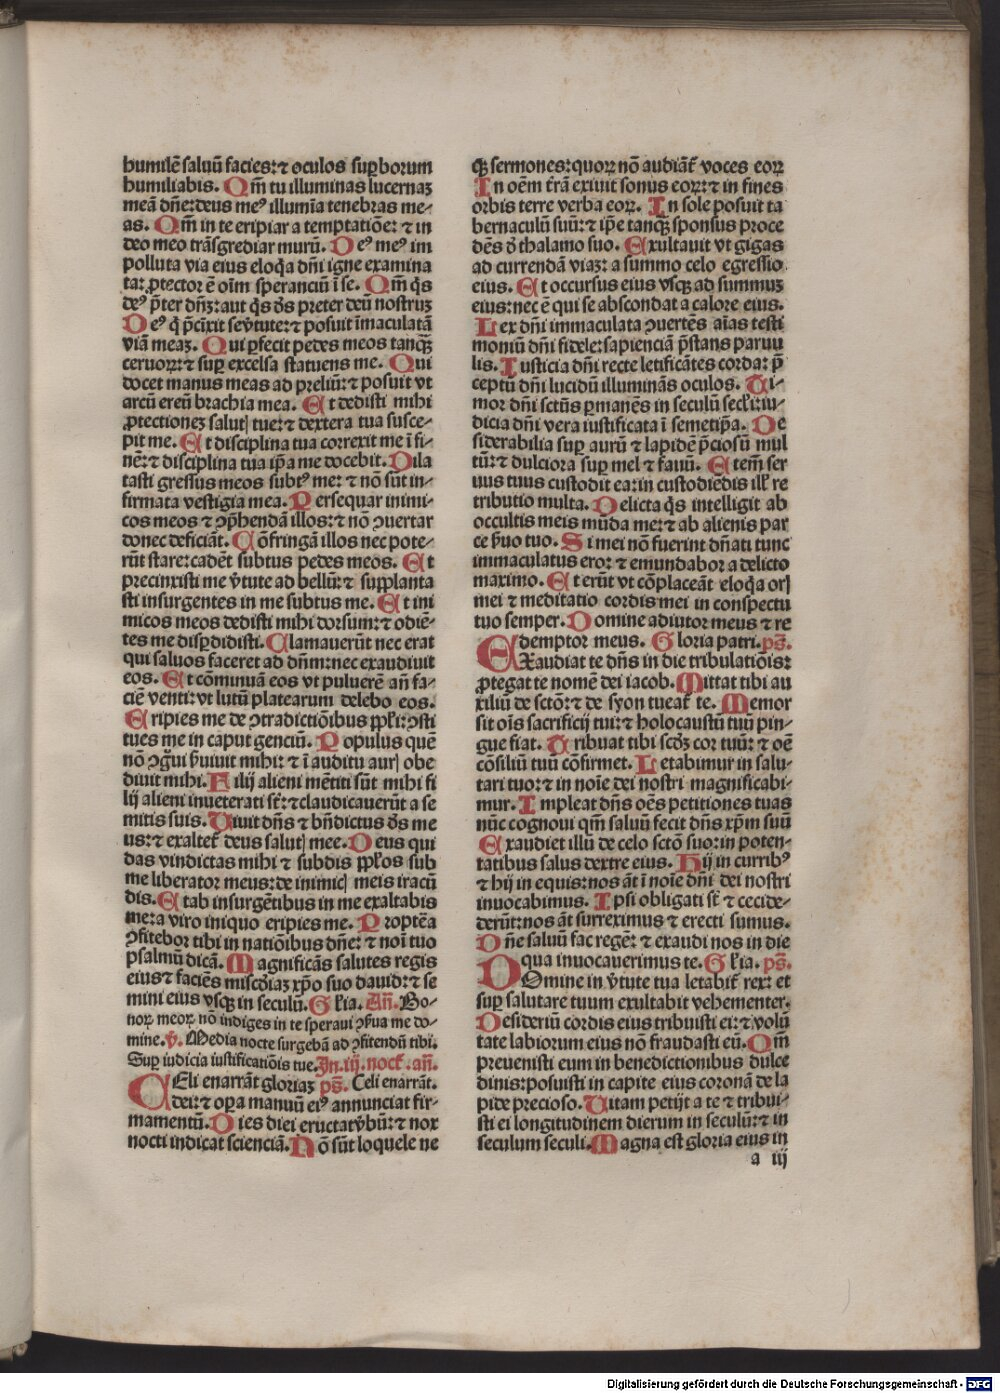 humilē saluū facies: ⁊ oculos suꝑborum
humiliabis. Qm̄ tu illuminas lucernaꝫ
meā dn̄e: deus meꝰ illumīa tenebras me-
as. Qm̄ in te eripiar a temptatiōe: ⁊ in
deo meo trāsgrediar murū. Deꝰ meꝰ im
polluta via eius eloq̄a dn̄i igne examina
ta: ꝓtector ē oīm speranciū ī se. Qm̄ q̄s
deꝰ p̄ter dn̄ꝫ: aut q̄s d̄s preter deū nostruꝫ
Deꝰ q̄ p̄cīxit se v̄tute: ⁊ posuit īmaculatā
viā meaꝫ. Qui ꝑfecit pedes meos tanqꝫ
ceruoꝝ: ⁊ suꝑ excelsa statuens me. Qui
docet manus meas ad preliū: ⁊ posuit vt
arcū ereū brachia mea. Et dedisti mihi
ꝓtectioneꝫ salutꝭ tue: ⁊ dextera tua susce-
pit me. Et disciplina tua correxit me ī fi-
nē: ⁊ disciplina tua ip̄a me docebit. Dila
tasti gressus meos subtꝰ me: ⁊ nō sūt in-
firmata vestigia mea. Persequar inimi-
cos meos ⁊ ꝯp̄hendā illos: ⁊ nō ꝯuertar
donec deficiāt. Cōfringā illos nec pote-
rūt stare: cadēt subtus pedes meos. Et
precinxisti me v̄tute ad bellū: ⁊ supplanta
sti insurgentes in me subtus me. Et ini
micos meos dedisti mihi dorsum: ⁊ odiē-
tes me disꝑdidisti. Clamauerūt nec erat
qui saluos faceret ad dn̄m: nec exaudiuit
eos. Et cōminuā eos vt puluerē an̄ fa-
ciē venti: vt lutū platearum delebo eos.
Eripies me de ꝯtradictiōibus ppl̄i: ꝯsti
tues me in caput genciū. Populus quē
nō ꝯg̅ui ẜuiuit mihi: ⁊ ī auditu aurꝭ obe
diuit mihi. Filij alieni mētiti sūt mihi fi
lij alieni inueterati st̄: ⁊ claudicauerūt a se
mitis suis. Viuit dn̄s ⁊ bn̄dictus d̄s me
us: ⁊ exaltet̄ deus salutꝭ mee. Deus qui
das vindictas mihi ⁊ subdis ppl̄os sub
me liberator meus: de inimicꝭ meis iracū
dis. Et ab insurgētibus in me exaltabis
me: a viro iniquo eripies me. Proptēa
ꝯfitebor tibi in natiōibus dn̄e: ⁊ noī tuo
psalmū dicā. Magnificās salutes regis
eius ⁊ faciēs miscd̄iaꝫ xp̄o suo dauid: ⁊ se
mini eius vsqꝫ in seculū. Gl̄ia. An̄. Bo-
noꝝ meoꝝ nō indiges in te speraui ꝯẜua me do-
mine. v̄. Media nocte surgebā ad ꝯfitendū tibi.
Suꝑ iudicia iustificatiōis tue. In. iij. noct̄. an̄.
CEli enarrāt gloriaꝫ ps̄. Celi enarrāt.
dei: ⁊ oꝑa manuū eiꝰ annunciat fir-
mamentū. Dies diei eructat v̄bū: ⁊ nox
nocti indicat scienciā. Nō sūt loquele ne
qꝫ sermones: quoꝝ nō audiāt̄ voces eoꝝ
In oēm t̄rā exiuit sonus eoꝝ: ⁊ in fines
orbis terre verba eoꝝ. In sole posuit ta
bernaculū suū: ⁊ ip̄e tanqꝫ sponsus proce
dēs d̄ thalamo suo. Exultauit vt gigas
ad currendā viaꝫ: a summo celo egressio
eius. Et occursus eius vsqꝫ ad summuꝫ
eius: nec ē qui se abscondat a calore eius.
Lex dn̄i immaculata ꝯuertēs aīas testi
moniū dn̄i fidele: sapienciā p̄stans paruu
lis. Iusticia dn̄i recte letificātes corda: p̄
ceptū dn̄i lucidū illuminās oculos. Ti-
mor dn̄i sctūs ꝑmanēs in seculū secl̄i: iu-
dicia dn̄i vera iustificata ī semetip̄a. De
siderabilia suꝑ aurū ⁊ lapidē p̄ciosū mul
tū: ⁊ dulciora suꝑ mel ⁊ fauū. Etem̄ ser
uus tuus custodit ea: in custodiēdis ill̄ re
tributio multa. Delicta q̄s intelligit ab
occultis meis mūda me: ⁊ ab alienis par
ce ẜuo tuo. Si mei nō fuerint dn̄ati tunc
immaculatus ero: ⁊ emundabor a delicto
maximo. Et erūt vt cōplaceāt eloq̄a orꝭ
mei ⁊ meditatio cordis mei in conspectu
tuo semper. Domine adiutor meus ⁊ re
demptor meus. Gloria patri. ps̄.
EXaudiat te dn̄s in die tribulatiōis:
ꝓtegat te nomē dei iacob. Mittat tibi au
xiliū de sctō: ⁊ de syon tueat̄ te. Memor
sit oīs sacrificij tui: ⁊ holocaustū tuū pin-
gue fiat. Tribuat tibi scd̄ꝫ cor tuū: ⁊ oē
cōsiliū tuū cōfirmet. Letabimur in salu-
tari tuo: ⁊ in noīe dei nostri magnificabi-
mur. Impleat dn̄s oēs petitiones tuas
nūc cognoui qm̄ saluū fecit dn̄s xp̄m suū
Exaudiet illū de celo sctō suo: in poten-
tatibus salus dextre eius. Hij in curribꝰ
⁊ hij in equis: nos āt ī noīe dn̄i dei nostri
inuocabimus. Ipsi obligati st̄ ⁊ cecide-
derūt: nos āt surreximus ⁊ erecti sumus.
Dn̄e saluū fac regē: ⁊ exaudi nos in die
qua inuocauerimus te. Gl̄ia. ps̄.
DOmine in v̄tute tua letabit̄ rex: et
suꝑ salutare tuum exultabit vehementer.
Desideriū cordis eius tribuisti ei: ⁊ volū
tate labiorum eius nō fraudasti eū. Qm̄
preuenisti eum in benedictionibus dulce
dinis: posuisti in capite eius coronā de la
pide precioso. Vitam petijt a te ⁊ tribui-
sti ei longitudinem dierum in seculū: ⁊ in
seculum seculi. Magna est gloria eius in
a iij
Digitalisierung gefördert durch die Deutsche Forschungsgemeinschaft - DFG